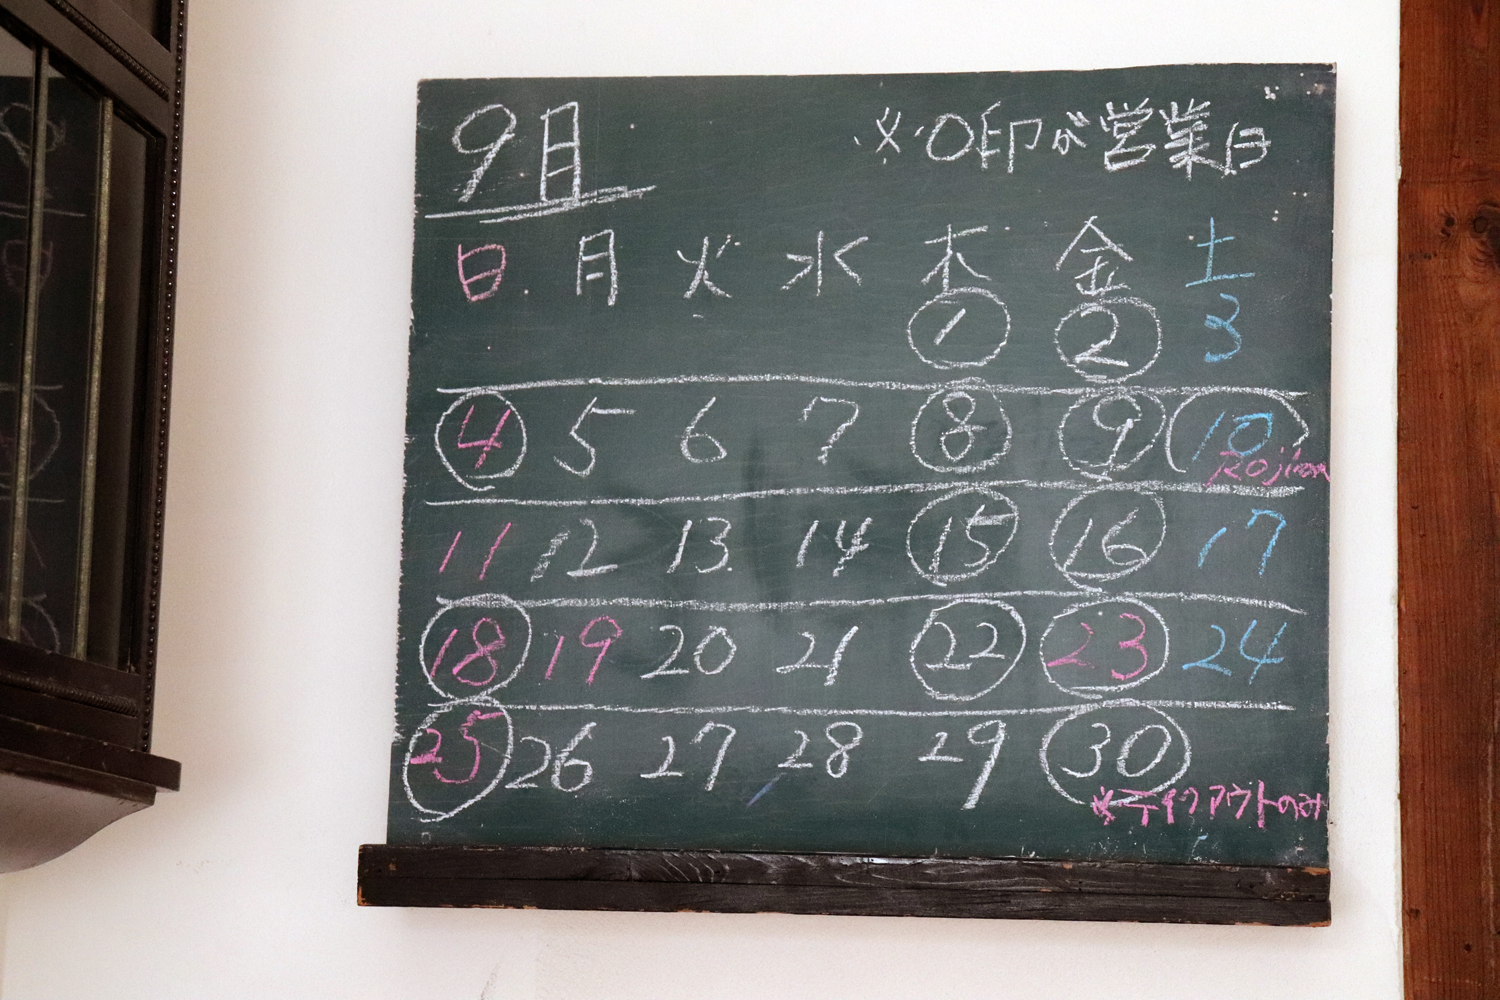 9月
※○印が営業日
日 月 火 水 木 金 土
1 2 3
4 5 6 7 8 9 10
Rojiman
11 12 13 14 15 16 17
18 19 20 21 22 23 24
25 26 27 28 29 30
※テイクアウトのみ